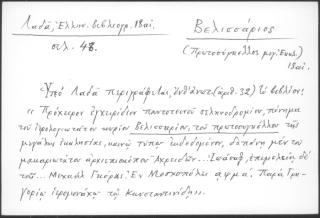 Λαδᾶ, Ἑλλην. βιβλιογρ. 18 αἰ.
σελ. 48.
Βελισσάριος
(Πρωτοσύγκελλος μεγ. Ἐκκλ.)
18 αἰ.
Ὑπὸ Λαδᾶ περιγράφεται, ἐνθ' ἄνωτ. (ἀριθ. 32) τὸ βιβλίον:
« Πρόχειρον ἐγχειρίδιον παντοτεινοῦ σεληνοδρομίου, πόνημα
τοῦ ἐλλογιμωτάτου κυρίου Βελισσαρίου, τοῦ πρωτοσυγκέλλου τῆς
μεγάλης ἐκκλησίας, κοινῷ τύπῳ ἐκδεδομένον, δαπάνῃ μὲν τοῦ
μακαριωτάτου ἀρχιεπισκόπου Ἀχρειδῶν... Ἰωάσαφ, ἐπιμελείᾳ δὲ
τοῦ... Μιχαὴλ Γκόρας. Ἐν Μοσχοπόλει αψμα'. Παρὰ Γρη-
γορίῳ ἱερομονάχῳ τῷ Κωνσταντινίδῃ».